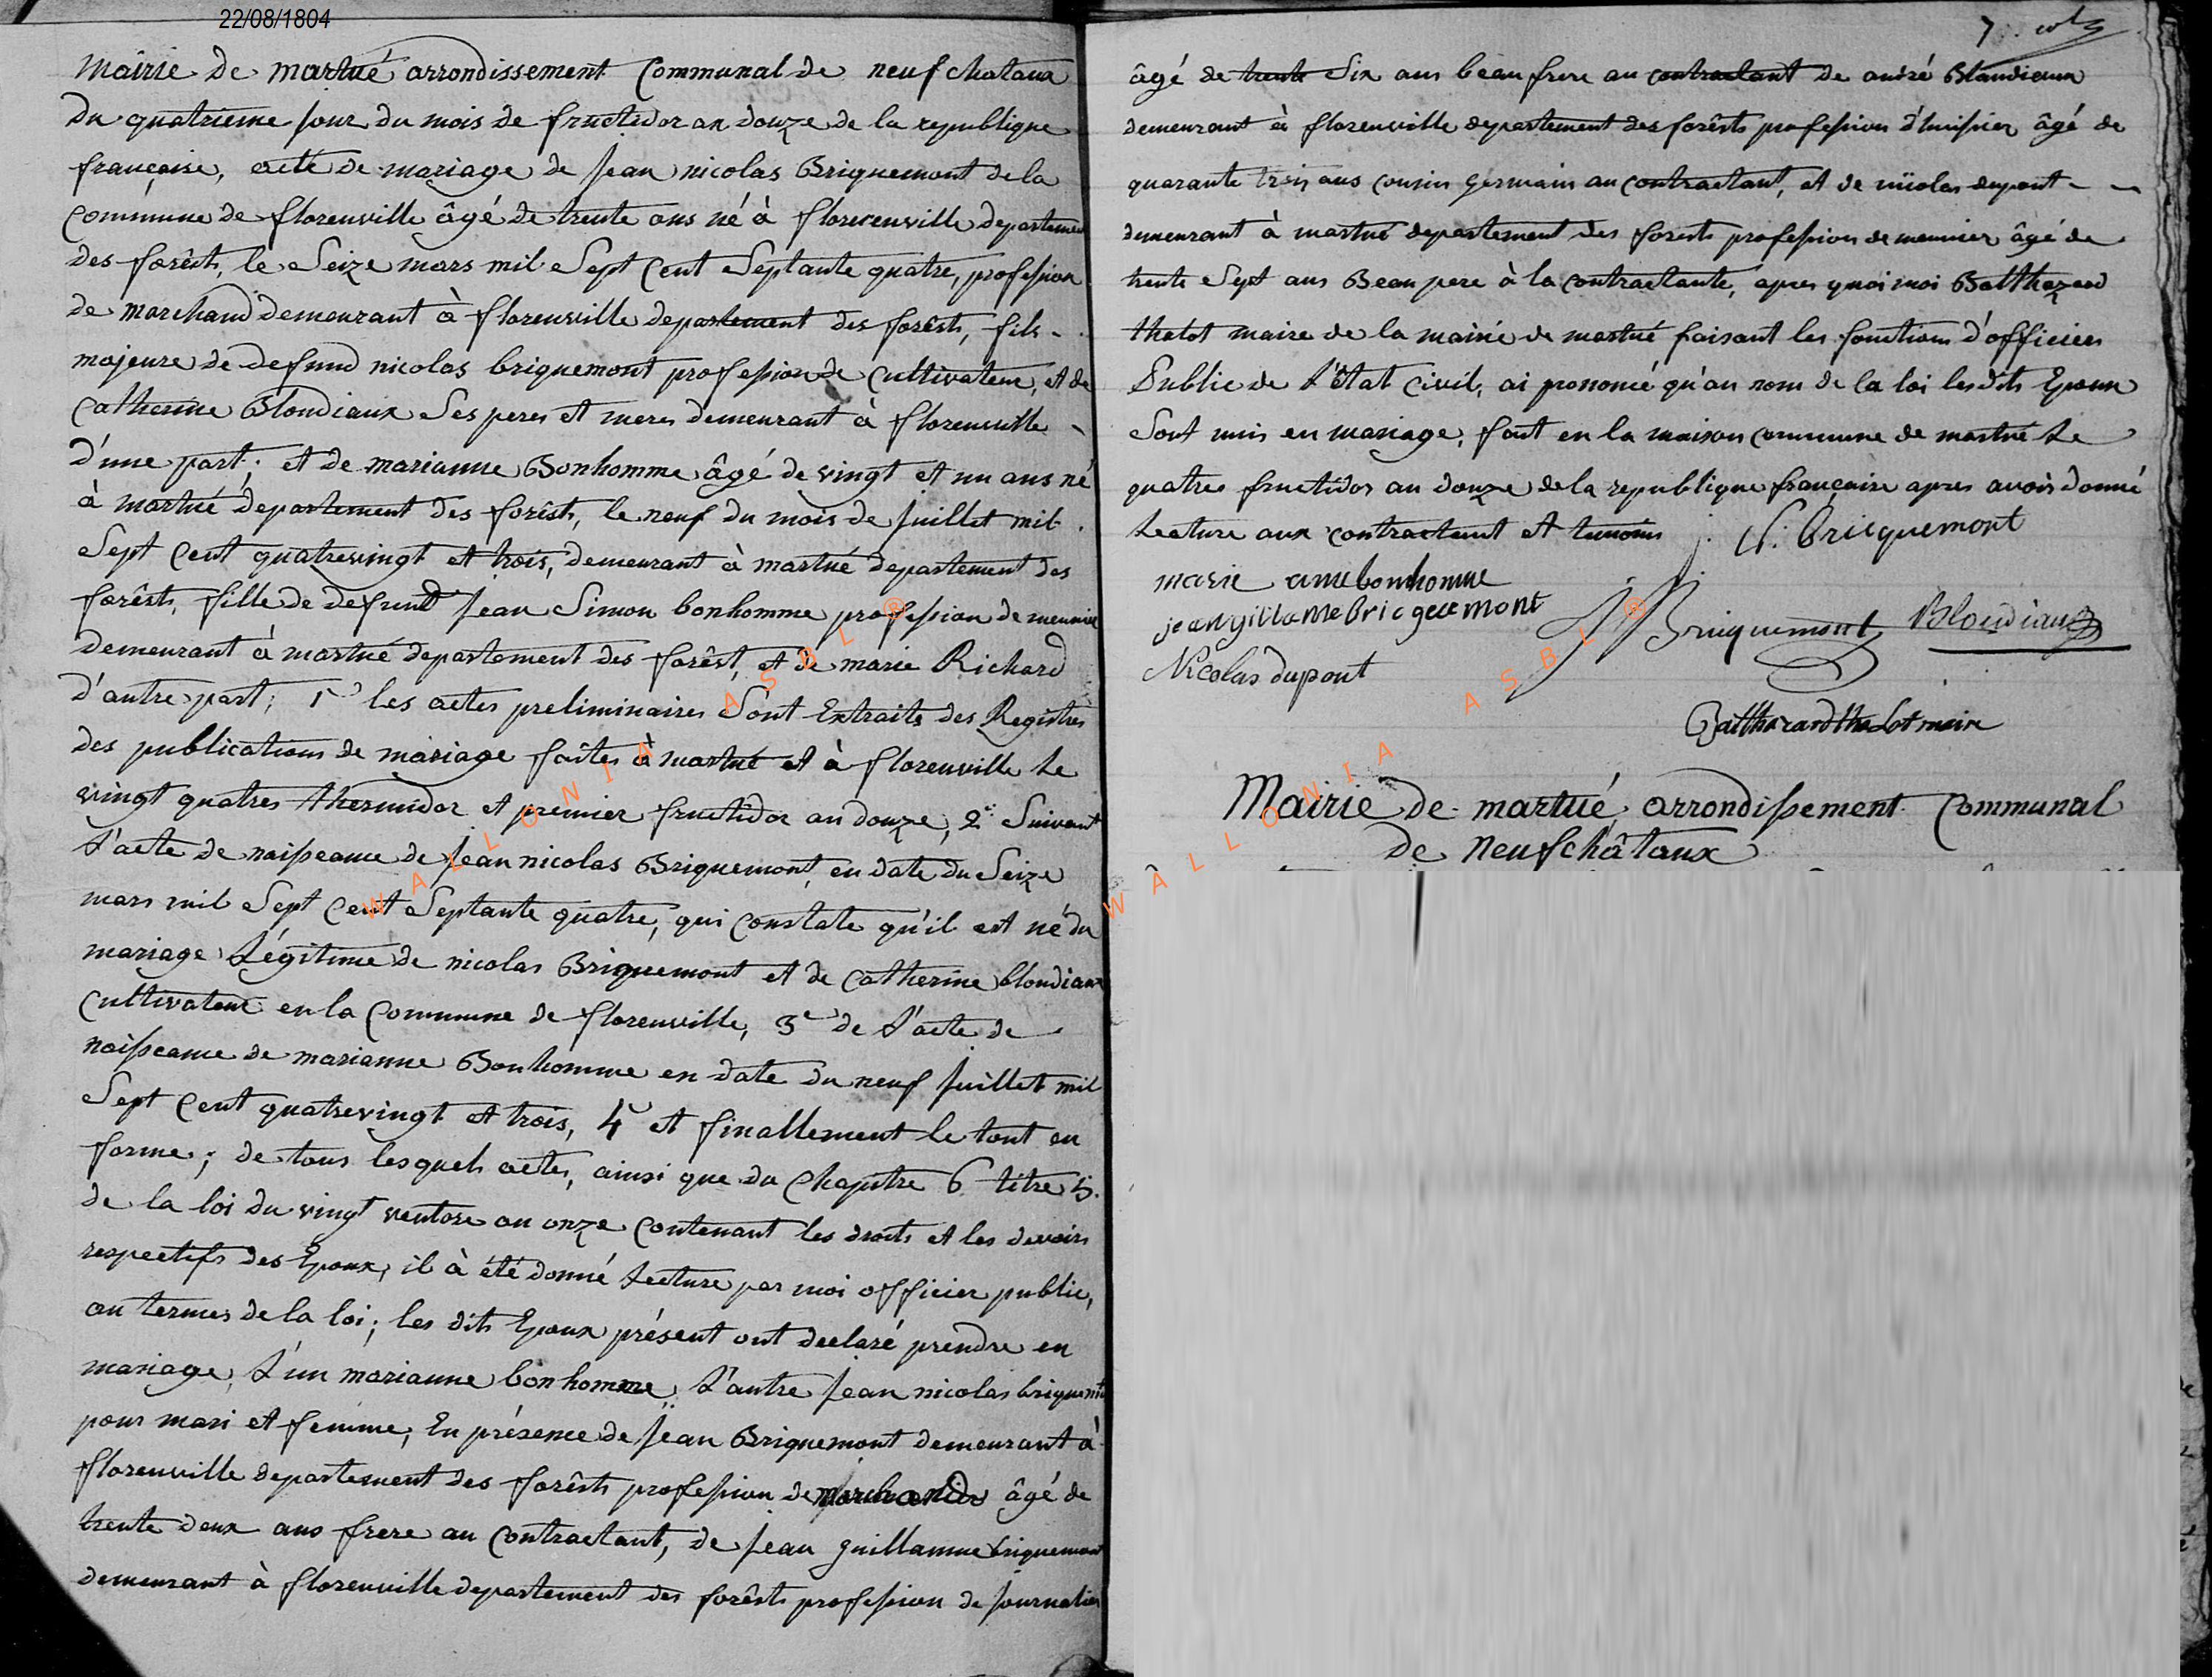 22/08/1804
Mairie de martué arrondissement Communal de neufchataux
Du quatrieme jour du mois de fructidor an douze de la republique
française, acte de mariage de Jean nicolas Briquemont de la
Commune de florenville âgé de trente ans né à florenville departement
des forêsts, le Seize mars mil Sept Cent Septante quatre, profession
de marchand demeurant à florenville departement des forêsts, fils
majeure de defund nicolas briquemont profession de Cultivateur, et de
Catherine Blondiaux Ses peres et meres demeurant à florenville
d'une part; et de marianne Bonhomme âgé de vingt et un ans né
à martué departement des forêsts, le neuf du mois de Juillet mil
Sept Cent quatrevingt et trois, demeurant à martué departement des
forêsts, fille de defund Jean Simon bonhomme profession de meunier
demeurant à martué departement des forêst, et de marie Richard
d'autre part; 1° les actes preliminaires Sont Extraits des Registres
des publications de mariage faites à martué et à florenville Le
vingt quatres thermidor et premier fructidor an douze, 2° Suivant
L'acte de naissance de Jean nicolas Briquemont, en date du Seize
mars mil Sept Cent Septante quatre, qui Constate qu'il est né du
mariage Légitime de nicolas Briquemont et de Catherine blondiaux
Cultivateur en la Commune de florenville, 3° de L'acte de
naissance de marianne Bonhomme en date du neuf Juillet mil
Sept Cent quatrevingt et trois, 4° et finallement le tout en
forme; de tous lesquels actes, ainsi que du Chapitre 6 titre 5.
de la loi du vingt ventose an onze Contenant les droits et les devoirs
respectifs des Epoux, il à été donné Lecture par moi officier public,
au termes de la loi; les dits Epoux présent ont declaré prendre en
mariage, L'un marianne bonhomme, L'autre Jean nicolas briquemont
pour mari et femme, En présence de Jean Briquemont demeurant à
florenville departement des forêsts profession de marchand âgé de
trente deux ans frere au Contractant, de Jean guillaume briquemont
demeurant à florenville departement des forêsts profession de Journalier
7
âgé de trente Six ans beau frere au contractant de andré Blandieux
demeurant à florenville departement des forêsts profession d'huissier âgé de
quarante trois ans Cousin germain au Contractant, et de nicolas dupont
demeurant à martué departement des forests profession de meunier âgé de
trente Sept ans Beau pere à la Contractante, apres quoi moi Balthazard
thalot maire de la mairie de martué faisant les fonctions d'officier
Public de L'Etat Civil, ai prononcé qu'au nom de la loi lesdits Epoux
Sont unis en mariage, fait en la maison commune de martué Le
quatres fructidor an douze de la republique française apres avoir donné
Lecture aux contractant et temoins
j. N. bricquemont
marie anne bonhomme
jean gillame bricquemont
Briquemont
Blondiaux
Nicolas dupont
Balthazard thalot maire
Mairie de martué arrondissement Communal
de Neufchâtaux
WALLONIA ASBL ®
WALLONIA ASBL ®